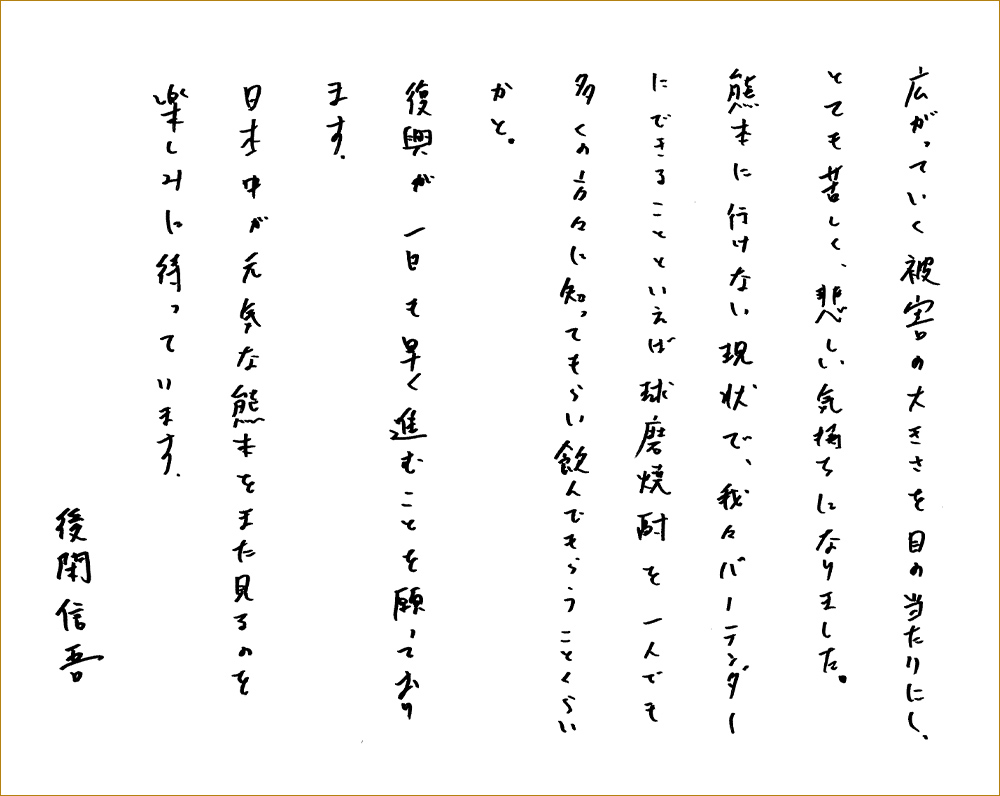 広がっていく被害の大きさを目の当たりにし、
とても苦しく、悲しい気持ちになりました。
熊本に行けない現状で、我々バーテンダー
にできることといえば球磨焼酎を一人でも
多くの方々に知ってもらい飲んでもらうことくらい
かと。
復興が一日も早く進むことを願っており
ます.
日本中が元気な熊本をまた見るのを
楽しみに待っています.
後閑信吾